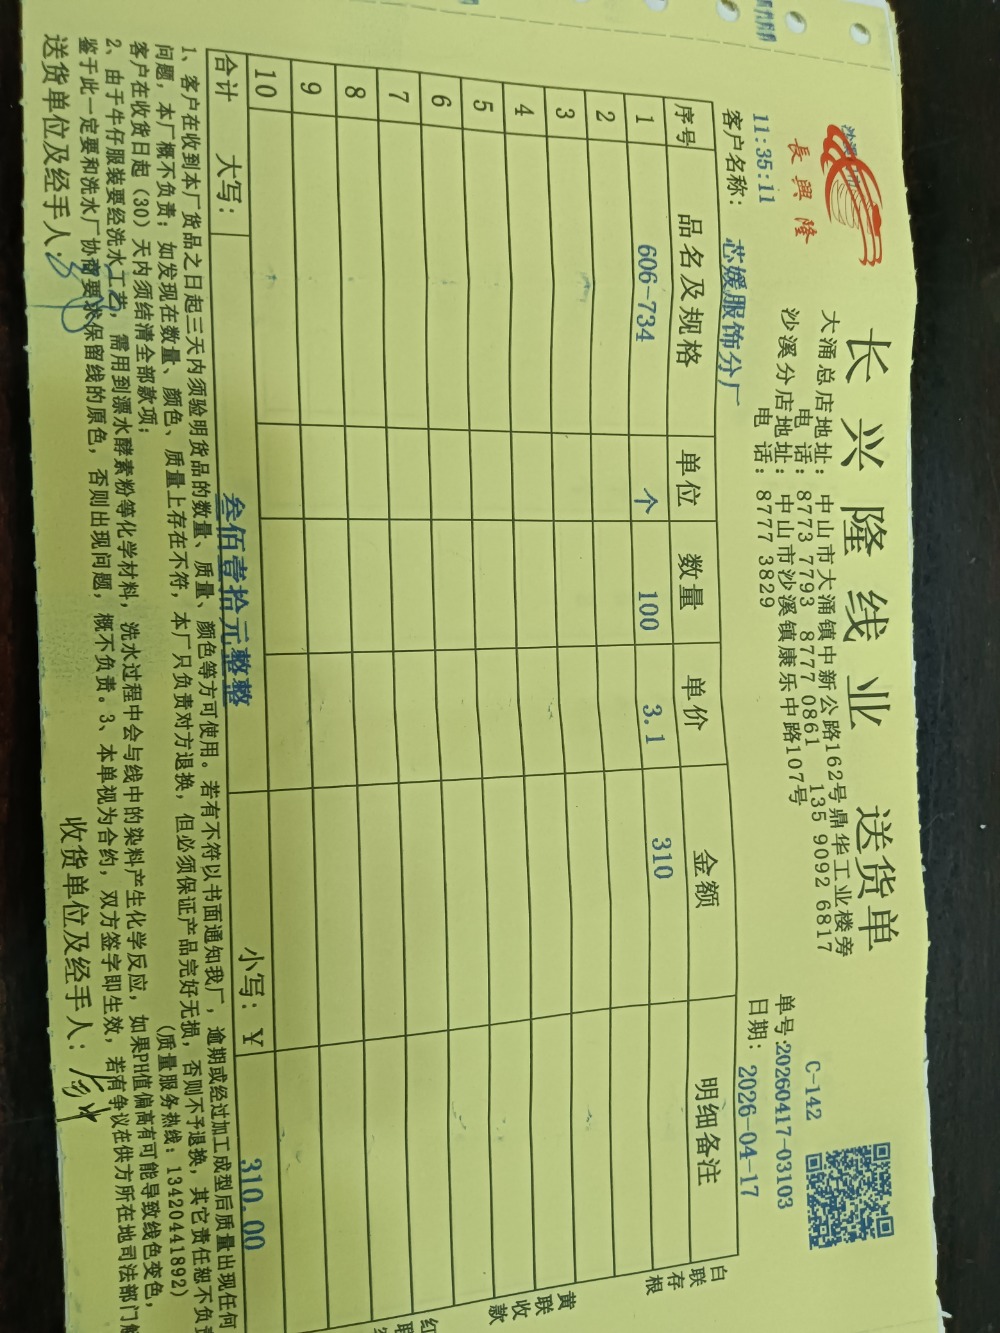 長興隆
长兴隆线业 送货单
大涌总店地址: 中山市大涌镇中新公路162号鼎华工业楼旁
电 话: 8773 7793 8777 0861 135 9092 6817
沙溪分店地址: 中山市沙溪镇康乐中路107号
电 话: 8777 3829
C-142
11:35:11
单号:20260417-03103
客户名称: 芯媛服饰分厂
日期: 2026-04-17
序号 品名及规格 单位 数量 单价 金额 明细备注
1 606-734 个 100 3.1 310
2
3
4
5
6
7
8
9
10
合计 大写: 叁佰壹拾元整整 小写: ¥ 310.00
白联存根
黄联收款
红联
1、客户在收到本厂货品之日起三天内须验明货品的数量、质量、颜色等方可使用。若有不符以书面通知我厂, 逾期或经过加工成型后质量出现任何
问题, 本厂概不负责; 如发现在数量、颜色、质量上存在不符, 本厂只负责对方退换, 但必须保证产品完好无损, 否则不予退换, 其它责任恕不负责
客户在收货日起 (30) 天内须结清全部款项; (质量服务热线: 13420441892)
2、由于牛仔服装要经洗水工艺, 需用到漂水酵素粉等化学材料, 洗水过程中会与线中的染料产生化学反应, 如果PH值偏高有可能导致线色变色,
鉴于此一定要和洗水厂协商要求保留线的原色, 否则出现问题, 概不负责。3、本单视为合约, 双方签字即生效, 若有争议在供方所在地司法部门
送货单位及经手人: 收货单位及经手人: